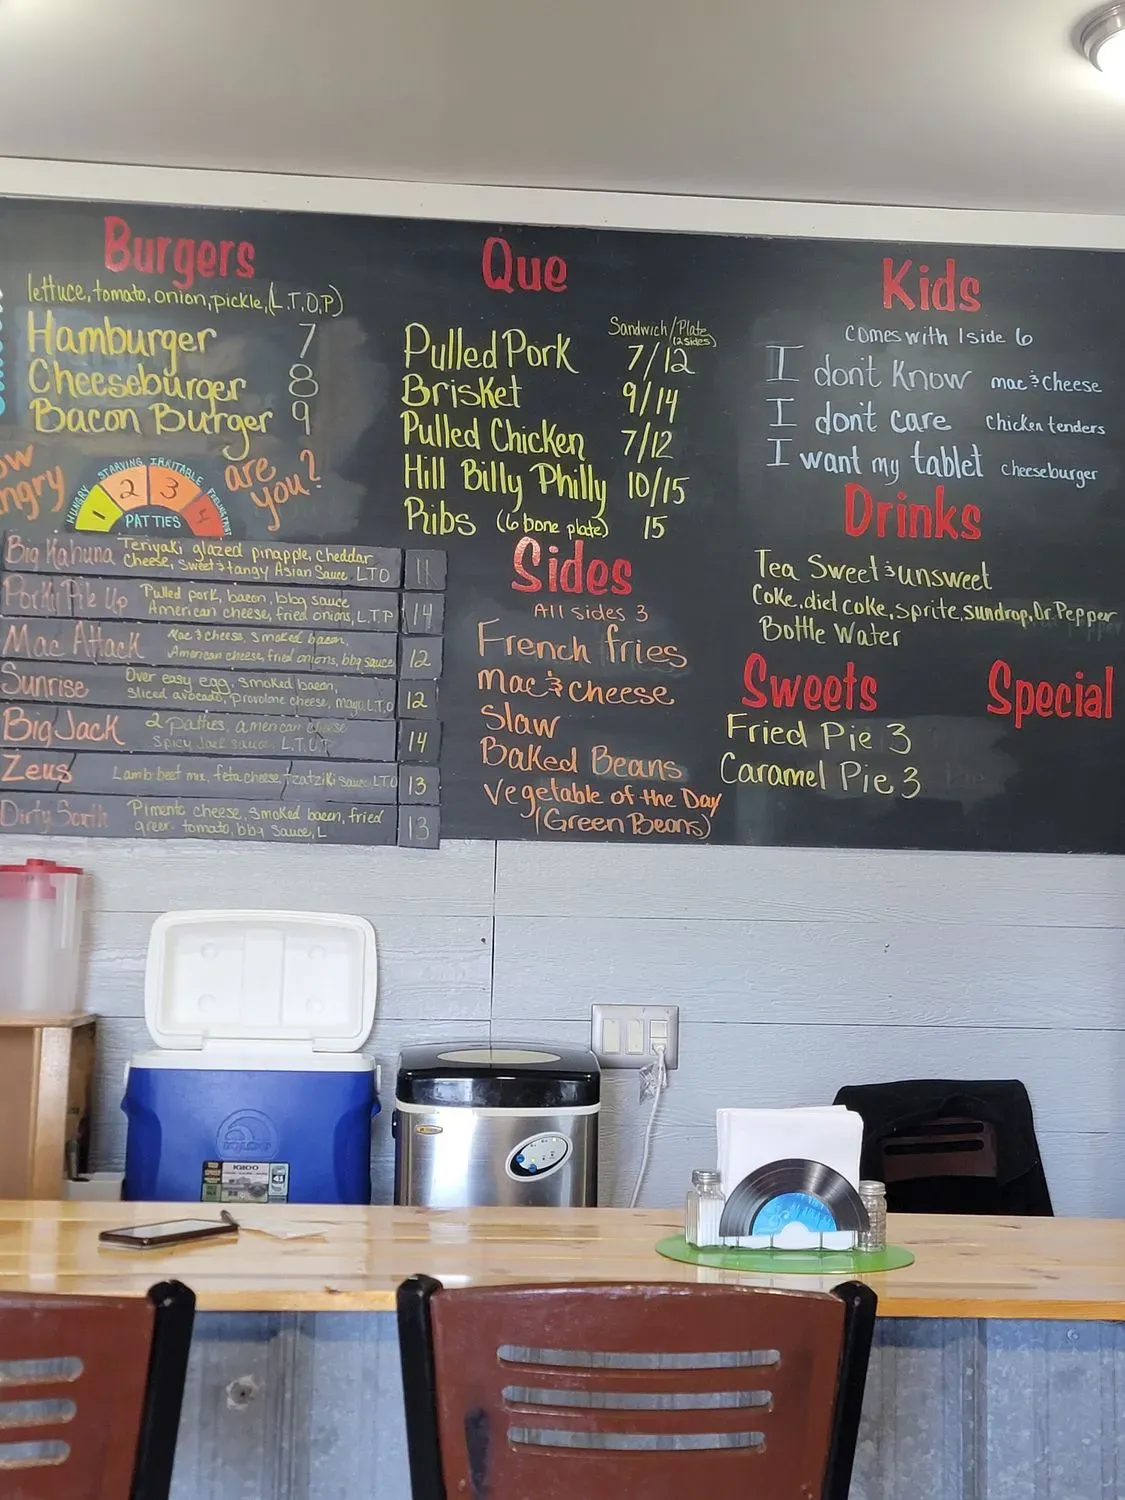 Burgers
lettuce, tomato, onion, pickle, (L.T.O.P)
Hamburger 7
Cheeseburger 8
Bacon Burger 9
are you?
HUNGRY STARVING IRRITABLE
1 2 3 4
PATTIES
Big Kahuna Teriyaki glazed pinapple, cheddar
Cheese, sweet & tangy Asian Sauce LTO 11
Porky Pile Up Pulled pork, bacon, bbq sauce
American cheese, fried onions, L.T.P 14
Mac Attack Mac & cheese, smoked bacon,
American cheese, fried onions, bbq sauce 12
Sunrise Over easy egg, smoked bacon,
sliced avocado, provolone cheese, mayo, L.T.O 12
Big Jack 2 patties, american cheese
Spicy Jack sauce, L.T.O.P 14
Zeus Lamb beef mix, feta cheese, Tzatziki sauce, LTO 13
Dirty South Pimento cheese, smoked bacon, fried
green tomato, bbq sauce, L 13
Que
Sandwich/Plate
(2 sides)
Pulled Pork 7/12
Brisket 9/14
Pulled Chicken 7/12
Hill Billy Philly 10/15
Ribs (6 bone plate) 15
Sides
All sides 3
French fries
Mac & cheese
Slaw
Baked Beans
Vegetable of the Day
(Green Beans)
Kids
Comes with 1 side 6
I don't know mac & cheese
I don't care Chicken tenders
I want my tablet cheeseburger
Drinks
Tea Sweet & unsweet
Coke, diet coke, sprite, sundrop, Dr. Pepper
Bottle Water
Sweets
Fried Pie 3
Caramel Pie 3
Special
IGLOO